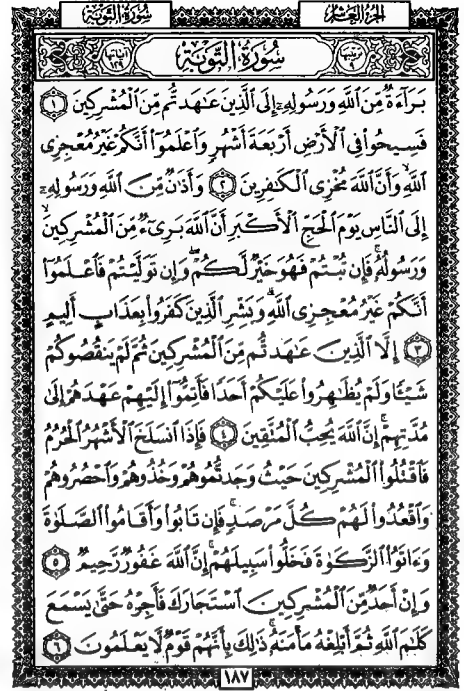 سُورَةُ التَّوْبَةِ الجُزْءُ العَاشِرُ
ترتيبها ٩ سُورَةُ التَّوْبَةِ آياتها ١٢٩
بَرَآءَةٌ مِّنَ ٱللَّهِ وَرَسُولِهِۦٓ إِلَى ٱلَّذِينَ عَٰهَدتُّم مِّنَ ٱلْمُشْرِكِينَ ١
فَسِيحُوا۟ فِى ٱلْأَرْضِ أَرْبَعَةَ أَشْهُرٍ وَٱعْلَمُوٓا۟ أَنَّكُمْ غَيْرُ مُعْجِزِى
ٱللَّهِ ۙ وَأَنَّ ٱللَّهَ مُخْزِى ٱلْكَٰفِرِينَ ٢ وَأَذَٰنٌ مِّنَ ٱللَّهِ وَرَسُولِهِۦٓ
إِلَى ٱلنَّاسِ يَوْمَ ٱلْحَجِّ ٱلْأَكْبَرِ أَنَّ ٱللَّهَ بَرِىٓءٌ مِّنَ ٱلْمُشْرِكِينَ ۙ
وَرَسُولُهُۥ ۚ فَإِن تُبْتُمْ فَهُوَ خَيْرٌ لَّكُمْ ۖ وَإِن تَوَلَّيْتُمْ فَٱعْلَمُوٓا۟
أَنَّكُمْ غَيْرُ مُعْجِزِى ٱللَّهِ ۗ وَبَشِّرِ ٱلَّذِينَ كَفَرُوا۟ بِعَذَابٍ أَلِيمٍ
٣ إِلَّا ٱلَّذِينَ عَٰهَدتُّم مِّنَ ٱلْمُشْرِكِينَ ثُمَّ لَمْ يَنقُصُوكُمْ
شَيْـًٔا وَلَمْ يُظَٰهِرُوا۟ عَلَيْكُمْ أَحَدًا فَأَتِمُّوٓا۟ إِلَيْهِمْ عَهْدَهُمْ إِلَىٰ
مُدَّتِهِمْ ۚ إِنَّ ٱللَّهَ يُحِبُّ ٱلْمُتَّقِينَ ٤ فَإِذَا ٱنسَلَخَ ٱلْأَشْهُرُ ٱلْحُرُمُ
فَٱقْتُلُوا۟ ٱلْمُشْرِكِينَ حَيْثُ وَجَدتُّمُوهُمْ وَخُذُوهُمْ وَٱحْصُرُوهُمْ
وَٱقْعُدُوا۟ لَهُمْ كُلَّ مَرْصَدٍ ۚ فَإِن تَابُوا۟ وَأَقَامُوا۟ ٱلصَّلَوٰةَ
وَءَاتَوُا۟ ٱلزَّكَوٰةَ فَخَلُّوا۟ سَبِيلَهُمْ ۚ إِنَّ ٱللَّهَ غَفُورٌ رَّحِيمٌ ٥
وَإِنْ أَحَدٌ مِّنَ ٱلْمُشْرِكِينَ ٱسْتَجَارَكَ فَأَجِرْهُ حَتَّىٰ يَسْمَعَ
كَلَٰمَ ٱللَّهِ ثُمَّ أَبْلِغْهُ مَأْمَنَهُۥ ۚ ذَٰلِكَ بِأَنَّهُمْ قَوْمٌ لَّا يَعْلَمُونَ ٦
١٨٧